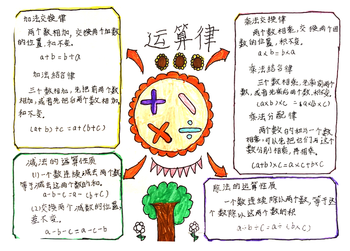 运算律
加法交换律
两个数相加,交换两个加数
的位置,和不变。
a+b=b+a
加法结合律
三个数相加,先把前两个
数相加,或者先把后两个数相加,
和不变。
(a+b)+c=a+(b+c)
减法的运算性质
(1)一个数连续减去两个数,
等于减去这两个数的和。
a-b-c=a-(b+c)
(2)交换两个减数的位置,
差不变。
a-b-c=a-c-b
乘法交换律
两个数相乘,交换两个因
数的位置,积不变。
a×b=b×a
乘法结合律
三个数相乘,先乘前两个
数,或者先乘后两个数,积不变。
(a×b)×c=a×(b×c)
乘法分配律
两个数的和与一个数
相乘,可以先把它们与这个
数分别相乘,再相乘。
(a+b)×c=a×c+b×c
除法的运算性质
一个数连续除以两个数,等于这
个数除以这两个数的积
a÷b÷c=a÷(b×c)